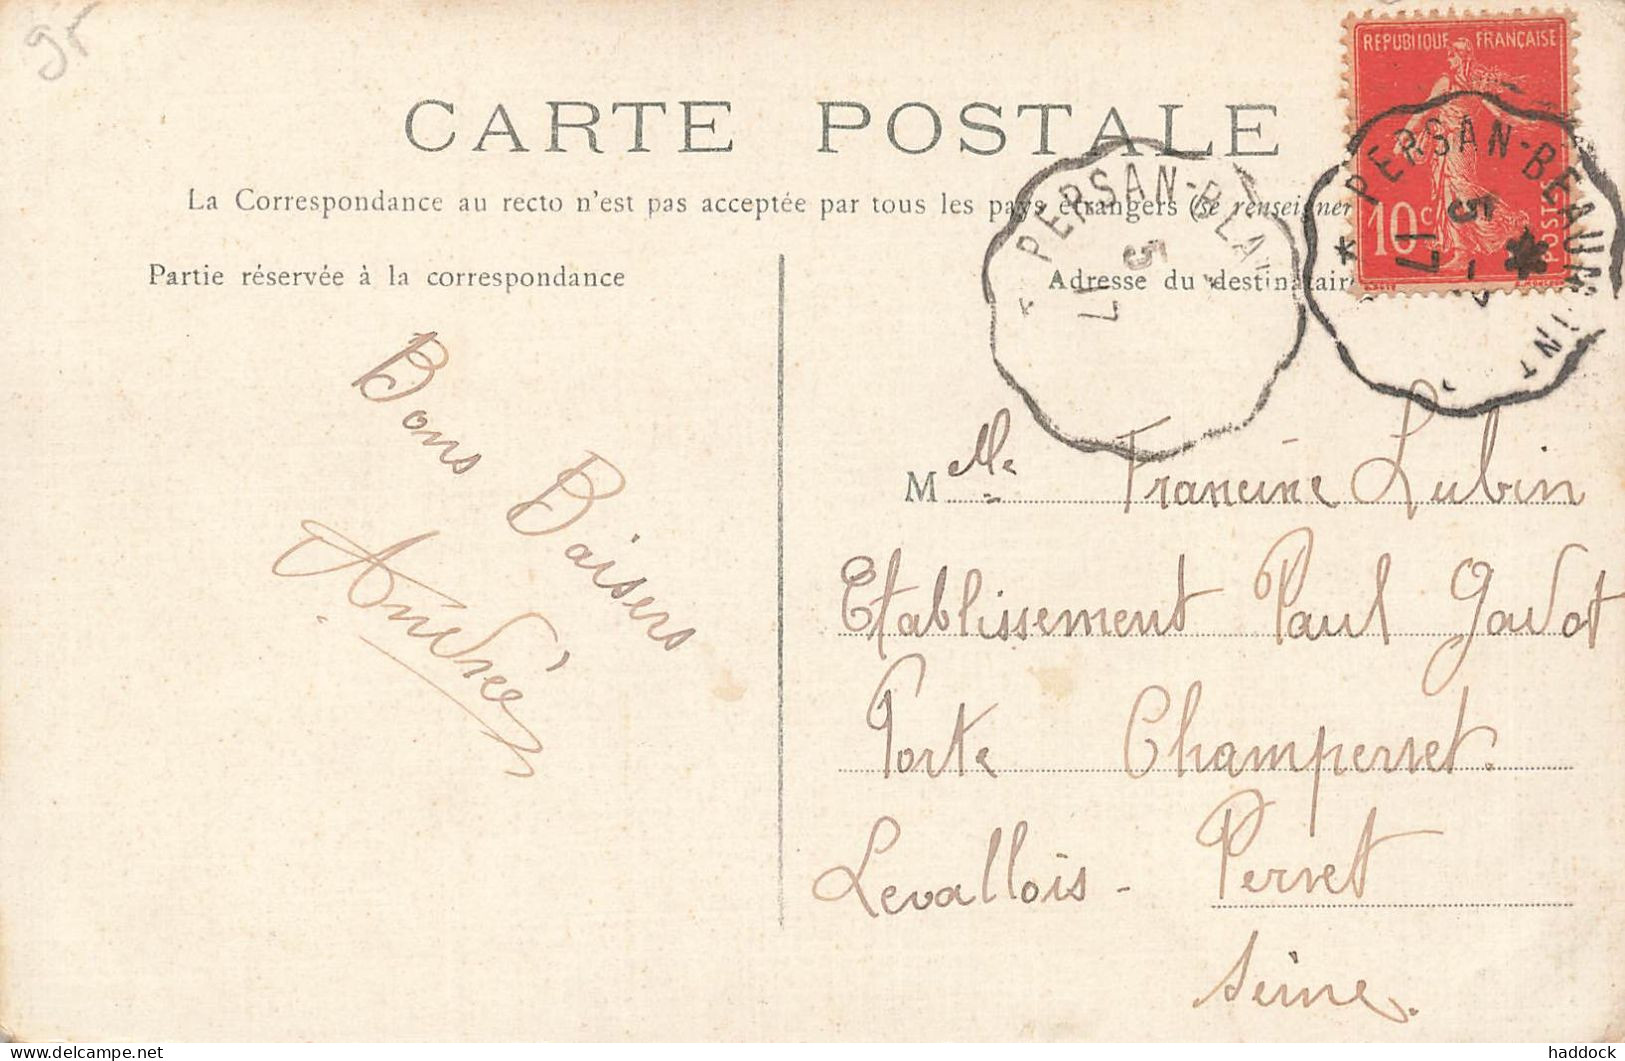 gr
REPUBLIQUE FRANÇAISE
10c
POSTES
CARTE POSTALE
PERSAN-BEAUM
PERSAN-BEAUM
17 5
17 5
La Correspondance au recto n'est pas acceptée par tous les pays étrangers (se renseigner
Partie réservée à la correspondance
Adresse du destinataire
Bons Baisers
Andrée
Melle Francine Lubin
Etablissement Paul Gadot
Porte Champerret.
Levallois - Perret
Seine.
haddock